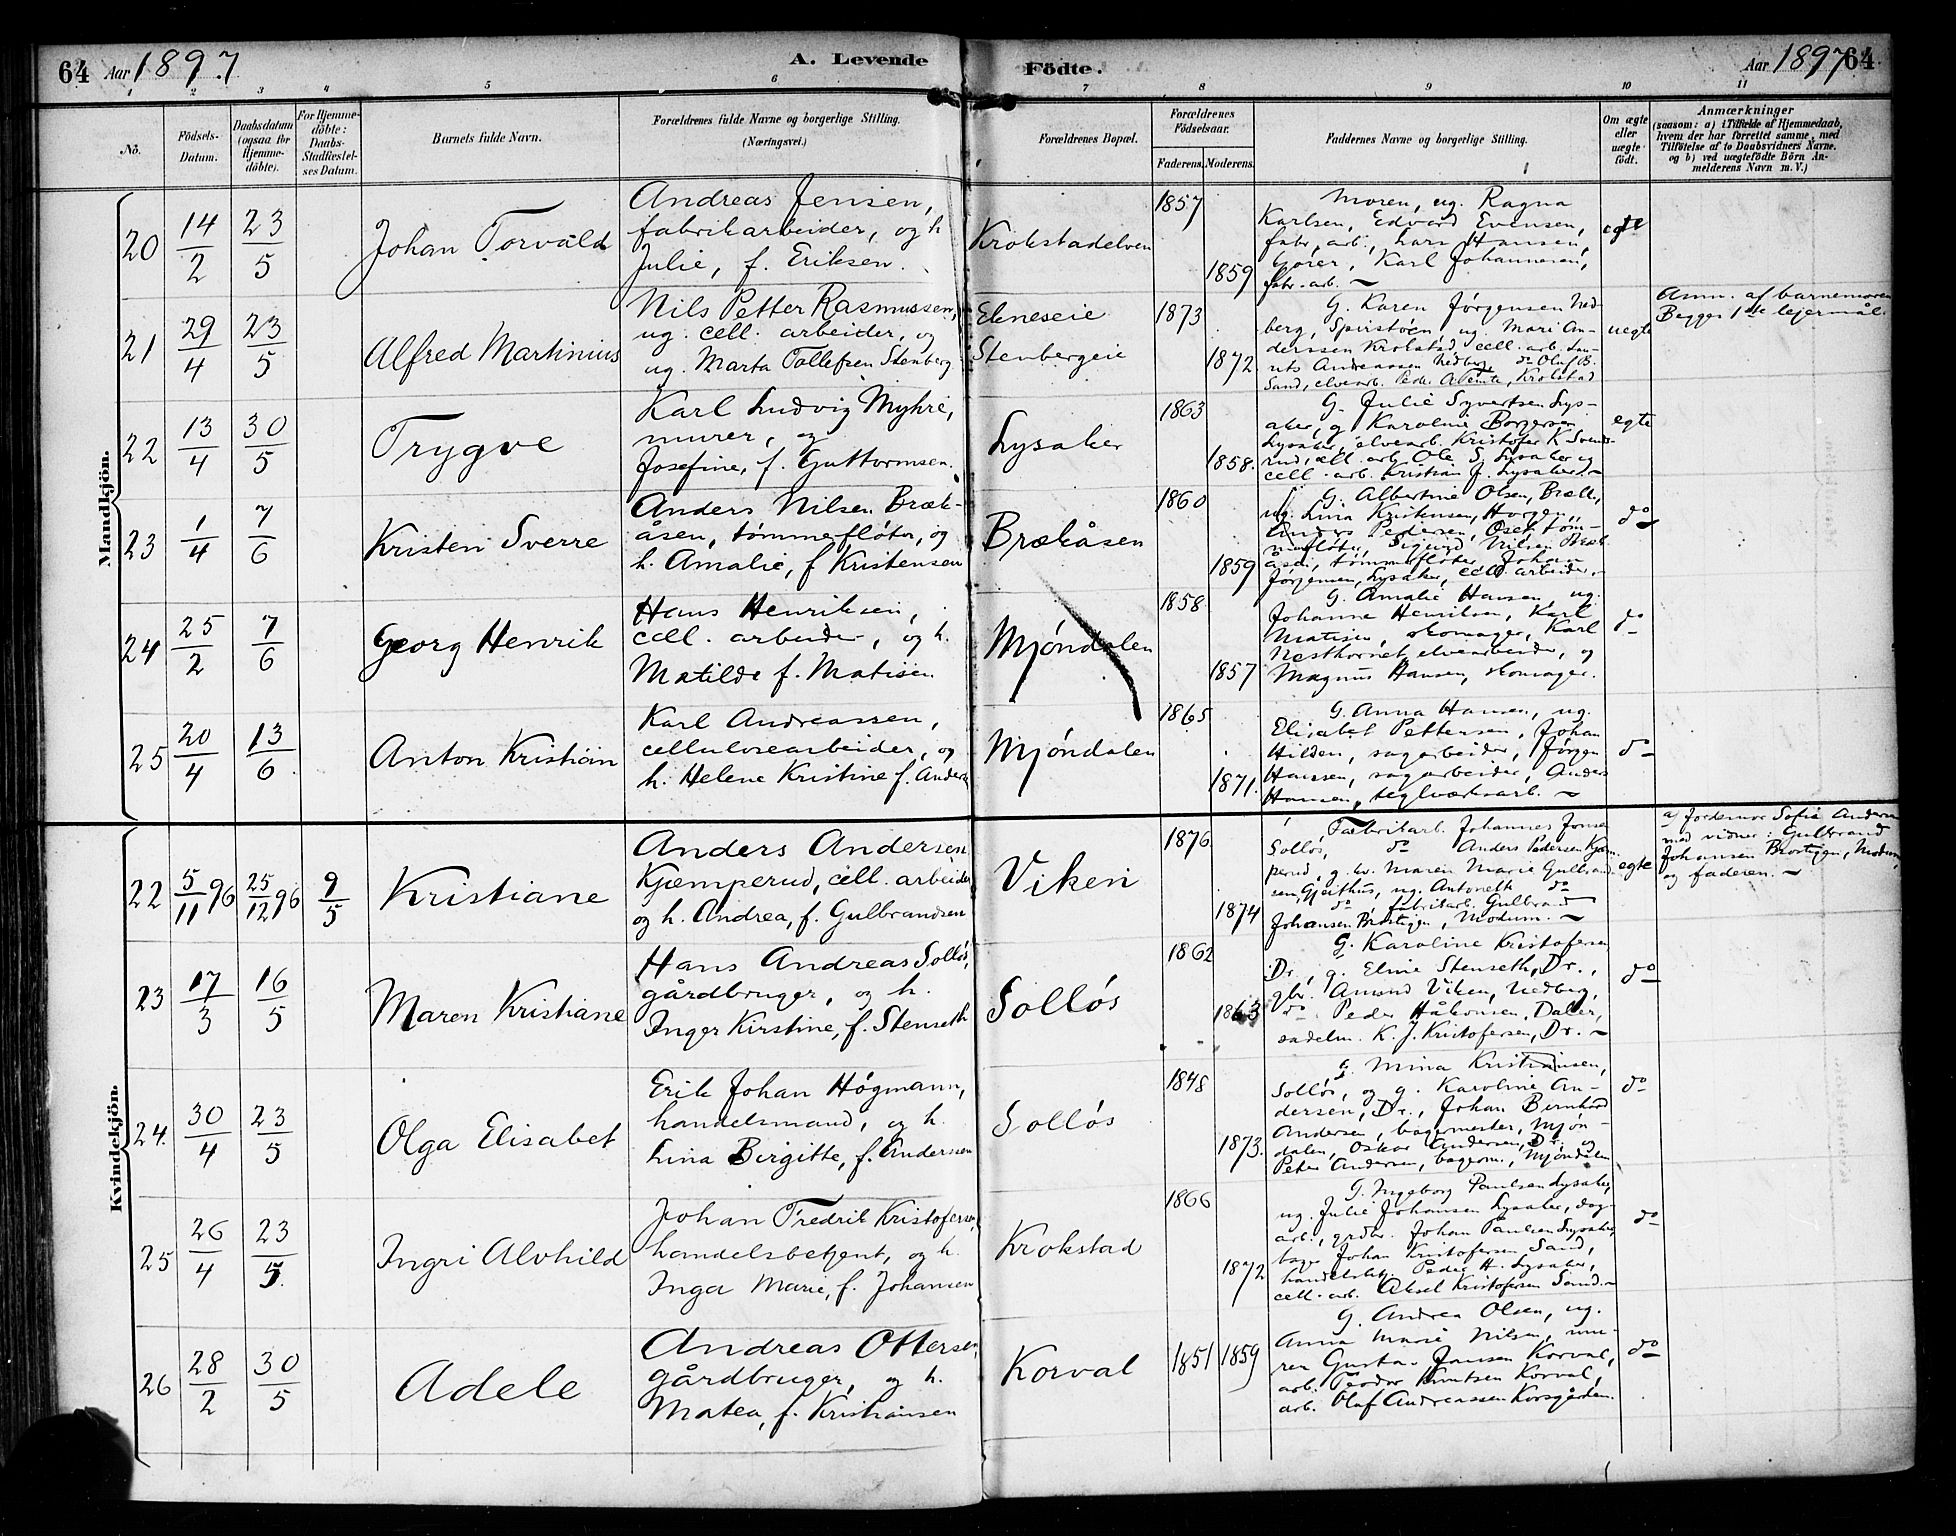 64 Aar 1897.
A. Levende
Födte.
Aar 1897 64
1 2 3 4 5 6 7 8 9 10 11
No.
Födsels-
Datum.
Daabsdatum
(ogsaa for
Hjemme-
döbte).
For Hjemme-
döbte:
Daabs-
Stadfæstel-
ses Datum.
Barnets fulde Navn.
Forældrenes fulde Navne og borgerlige Stilling.
(Næringsvei.)
Forældrenes Bopæl.
Forældrenes
Födselsaar.
Faderens. Moderens.
Faddernes Navne og borgerlige Stilling.
Om ægte
eller
uægte
födt.
Anmærkninger
(saasom: a) i Tilfælde af Hjemmedaab,
hvem der har forrettet samme, med
Tilföielse af to Daabsvidners Navne.
og b) ved uægtefödte Börn An-
melderens Navn m. V.)
Mandkjön.
20
14/2
23/5
Johan Torvald
Andreas Jensen,
fabrikarbeider, og h
Julie, f. Eriksen.
Krokstadelven
1857
1859
Moren, ug. Ragna
Karlsen, Edvard Evensen,
fabr. arb., Lars Hansen,
Gorer, Karl Johannesen,
fabr. arb. ~
egte
21
29/4
23/5
Alfred Martinius
Nils Petter Rasmussen,
ug. cell. arbeider, og
ug. Marta Tollefsen Stenberg
Eleneseie
Stenbergeie
1873
1872.
G. Karen Jørgensen Ned-
berg, Spirstöen ug. Mari An-
derssen Krokstad cell. arb.
Andreassen Nedberg do Oluf B.
Sand, elvearb. Peder A. Krokstad
uegte
Anm. af barnemoren
Begges 1ste lejermål.
22
13/4
30/5
Trygve
Karl Ludvig Myhre,
murer, og
Josefine, f. Guttormsen.
Lysaker
1863
1858.
G. Julie Syvertsen Lys-
aker, g. Karoline Borgersen
Lysaker, elvearb. Kristofer K.
rud, cell. arb. Ole S. Lysaker og
cell. arb. Kristian J. Lysaker. ~
egte
23
1/4
7/6
Kristen Sverre
Anders Nilsen Bræk-
åsen, tømmefløter, og
h. Amalie, f Kristensen
Brækåsen
1860
1859
G. Albertine Olsen, Bræk,
ug. Lina Kristensen, Horgen,
Anders Pedersen, Oset töm-
mefløter, Sigurd Nilsen Bræk
åsen, tømmefløter, Johan
Jørgensen, Lysaker, cell. arbeider. -
do
24
25/2
7/6
Georg Henrik
Hans Henriksen,
cell. arbeider, og h.
Matilde f. Matisen.
Mjöndalen
1858
1857
G. Amalie Hansen, ug.
Johanne Henriksen, Karl
Matisen, skomager, Karl
Nesthornet elvearbeider, og
Magnus Hansen, skomager.
do
25
20/4
13/6
Anton Kristian
Karl Andreassen,
cellulosearbeider, og
h. Helene Kristine f. Anders
Mjöndalen
1865
1871.
G. Anna Hansen, ug.
Elisabet Pettersen, Johan
Hilden, sagarbeider, Jörgen
Hansen, sagarbeider, Anders
Hansen, teglværksarb. ~
do
Kvindekjön.
22
5/11 96
25/12 96
9/5
Kristiane
Anders Andersen
Kjæmperud, cell. arbeider
og h. Andrea, f. Gulbrandsen
Viken
1876
1874
Fabrikarb. Johannes Jonsen
Sollös, do Anders Pedersen Kjæm-
perud, g. kv. Maren Marie Gulbrand
sen, Gjeithus, ug. Antonette do
do, fabrikarb. Gulbrand
Johansen Brostigen, Modum. ~
egte
a) Jordemor Sofie Andersen
med vidner: Gulbrand
Johansen Brostigen, Modum,
og faderen. ~
23
17/3
16/5
Maren Kristiane
Hans Andreas Sollös,
gårdbruger, og h.
Inger Kirstine, f. Stenseth
Sollös
1862
1863
G. Karoline Kristofersen
Dr., g. Eline Stenseth, Dr.,
gbr. Amund Viken, Nedberg,
do Peder Håkonsen, Daler,
sadelm. K. J. Kristofersen, Dr. ~
do
24.
30/4
23/5
Olga Elisabet
Erik Johan Högmann,
handelsmand, og h.
Lina Birgitte, f. Andersen
Sollös
1848
1873.
G. Mina Kristiansen,
Sollös, og g. Karoline An-
dersen, Dr., Johan Bernhard
Andersen, bagermester, Mjön-
dalen, Oskar Andersen, Dr. og
Peter Andersen, bagerm., Mjöndalen
do
25
26/4
23/5.
Ingri Alvhild
Johan Fredrik Kristofersen,
handelsbetjent, og h.
Inga Marie, f. Johansen
Krokstad
1866
1872
G. Ingeborg Paulsen Lysaker,
ug. Julie Johansen Lysaker, dag-
arb., grdbr. Johan Paulsen Lysaker,
Johan Kristofersen Sand,
handelsbetj. Peder H. Lysaker,
cell. arb. Aksel Kristofersen Sand. ~
do
26
28/2
30/5
Adele
Andreas Ottersen,
gårdbruger, og h.
Matea, f. Kristiansen
Korval
1851
1859
G. Andrea Olsen, ug.
Anna Marie Nilsen, mu-
rer Gustav Jansen Korval,
arb. Teodor Knutsen Korval,
arb. Olaf Andreassen Korsgården.
do